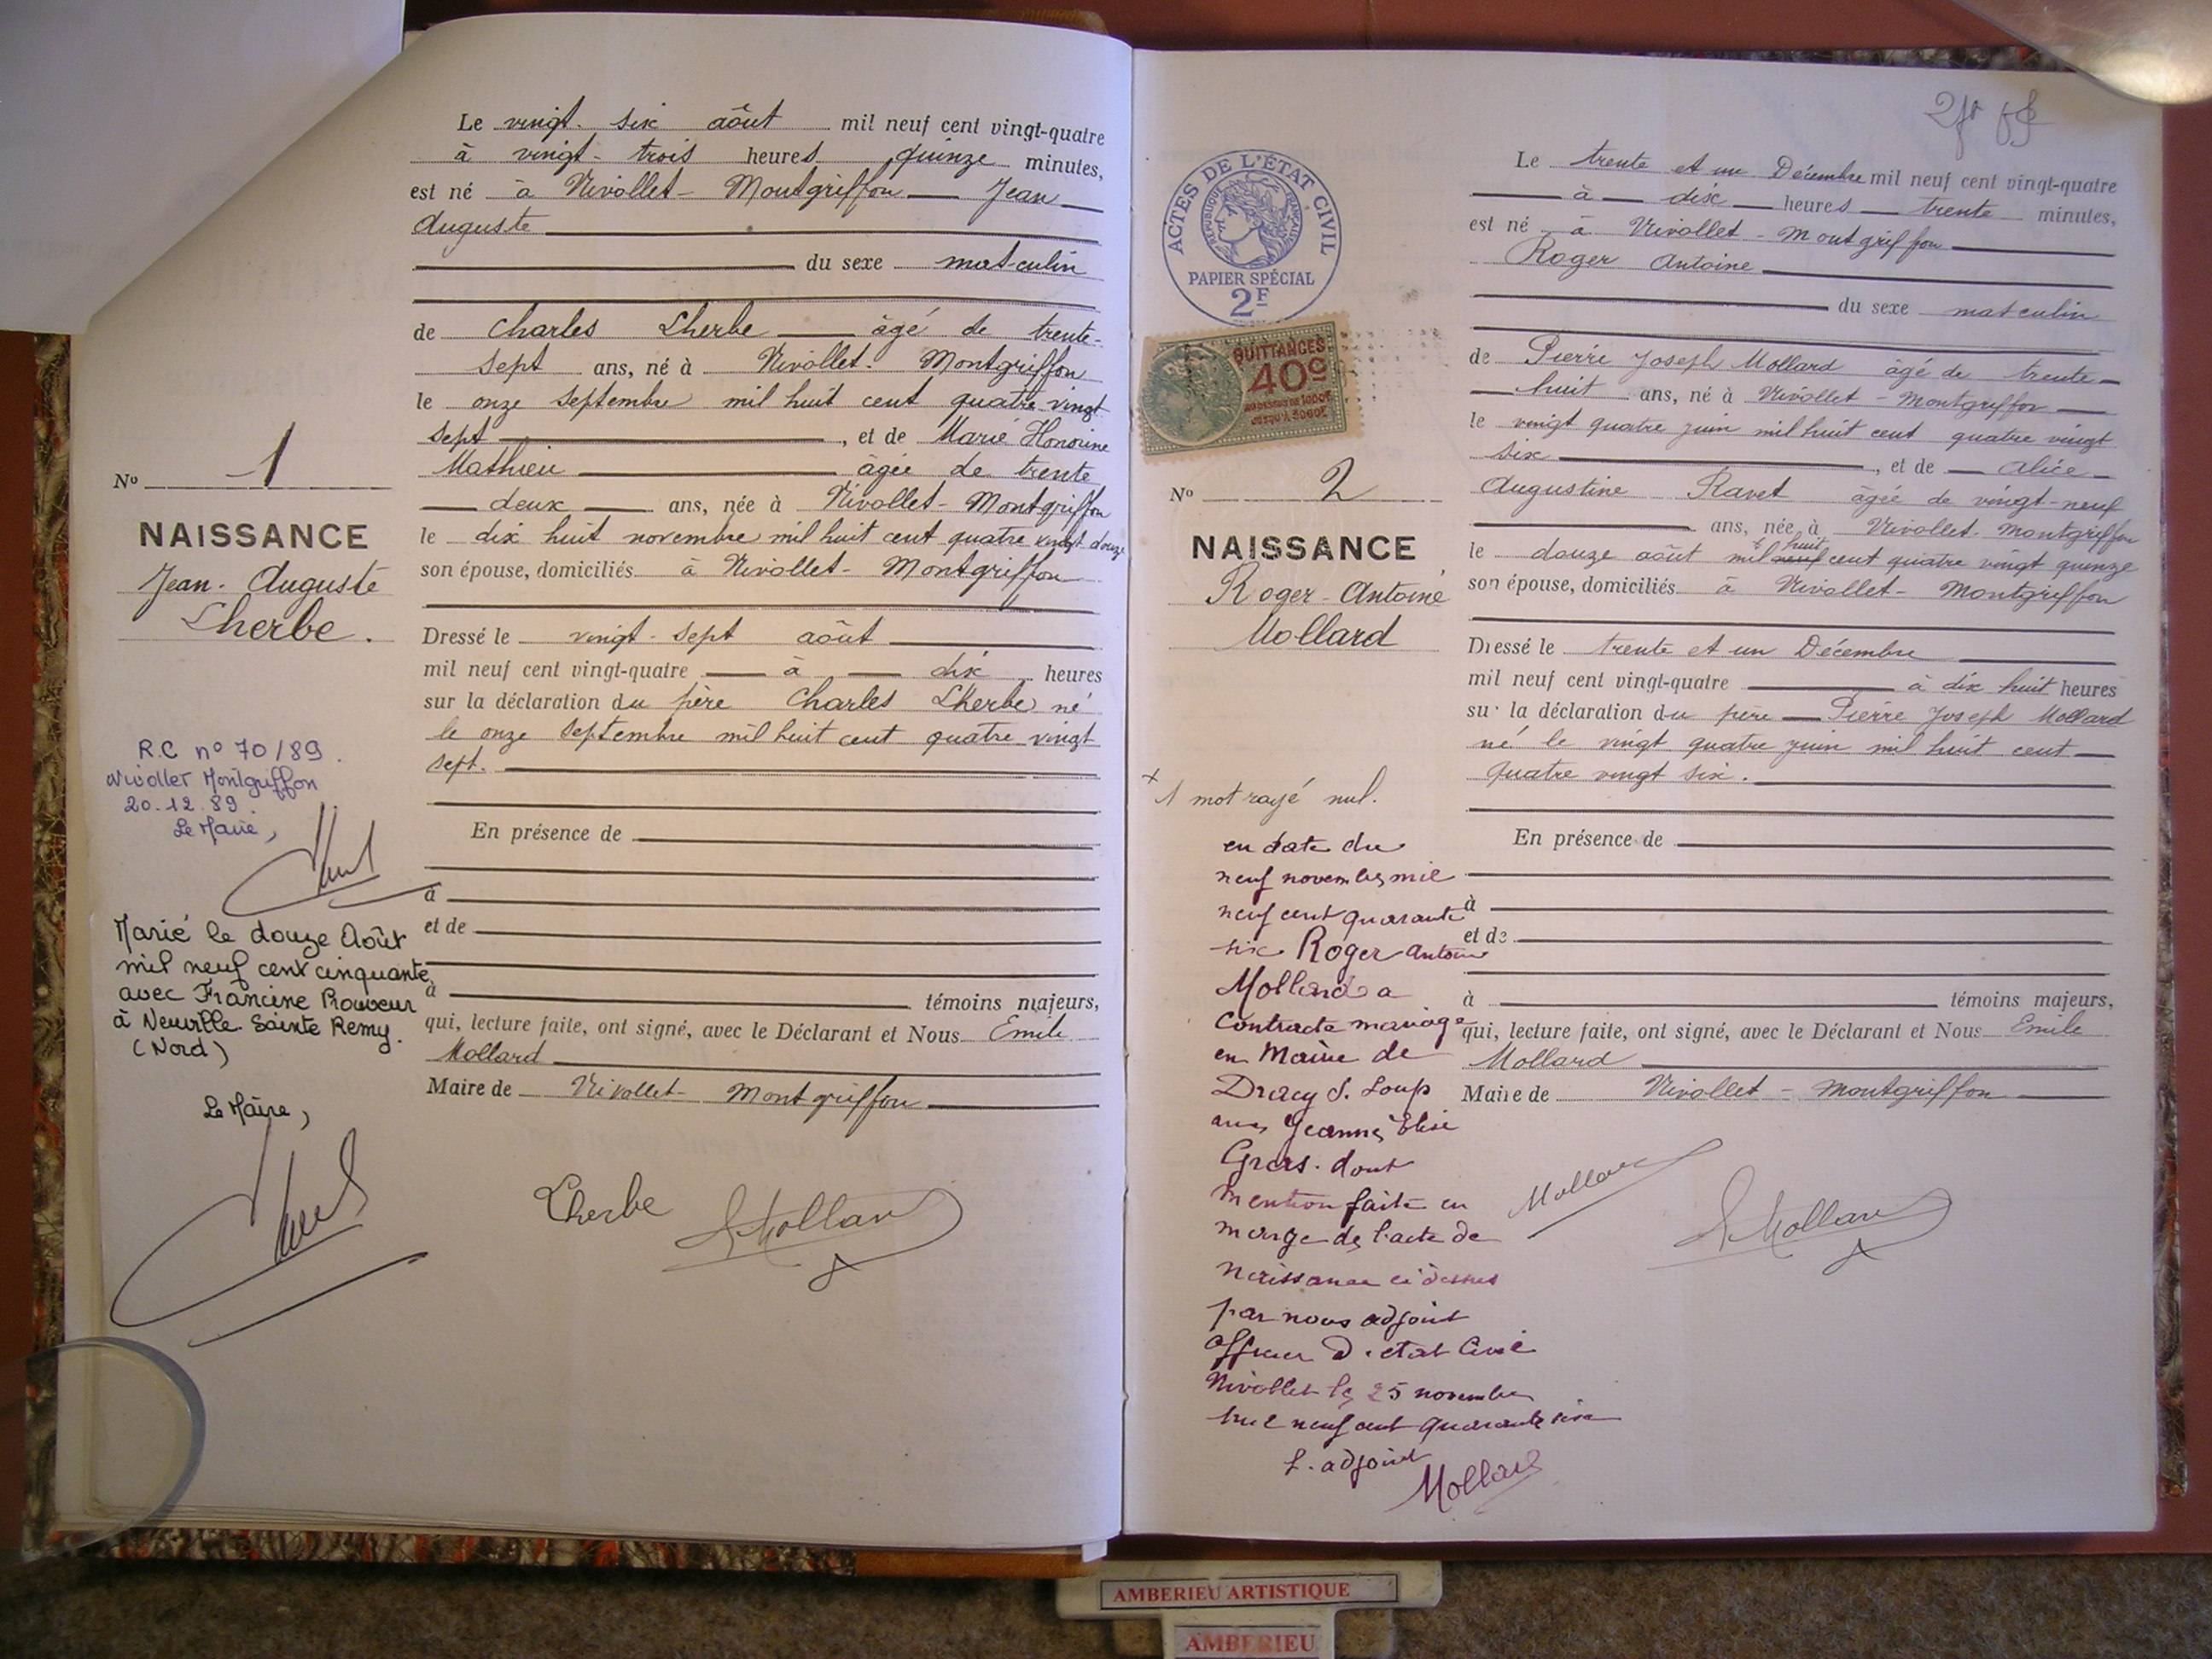 Le vingt-six août mil neuf cent vingt-quatre
à vingt-trois heures quinze minutes,
est né à Nivollet-Montgriffon Jean
Auguste
du sexe masculin
de Charles Lherbe âgé de trente-
sept ans, né à Nivollet-Montgriffon
le onze septembre mil huit cent quatre vingt
sept, et de Marie Honorine
Mathieu âgée de trente
deux ans, née à Nivollet-Montgriffon
le dix huit novembre mil huit cent quatre vingt douze
son épouse, domiciliés à Nivollet-Montgriffon
Dressé le vingt-sept août
mil neuf cent vingt-quatre à dix heures
sur la déclaration du père Charles Lherbe né
le onze septembre mil huit cent quatre vingt
sept.
En présence de
à
et de
à témoins majeurs,
qui, lecture faite, ont signé, avec le Déclarant et Nous Emile
Mollard
Maire de Nivollet-Montgriffon
Lherbe
Mollard
No 1
NAISSANCE
Jean-Auguste
Lherbe.
R.C n° 70/89.
Nivollet Montgriffon
20.12.89.
Le Maire,
Marié le douze Août
mil neuf cent cinquante
avec Francine Prouveur
à Neuville Sainte Remy.
(Nord)
Le Maire,
ACTES DE L'ÉTAT CIVIL
RÉPUBLIQUE FRANÇAISE
PAPIER SPÉCIAL
2F
QUITTANCES
40c
AU DESSUS DE 1000F
JUSQU'À 3000F
No 2
NAISSANCE
Roger-Antoine
Mollard
+
1 mot rayé nul.
en date du
neuf novembre mil
neuf cent quarante
six Roger Antoine
Mollard a
contracté mariage
en Mairie de
Dracy S. Loup
avec Jeanne Elise
Gras. dont
mention faite en
marge de l'acte de
naissance ci dessus
par nous adjoint
officier d'etat Civil
Nivollet le 25 novembre
mil neuf cent quarante six
l'adjoint
Mollard
Le trente et un Décembre mil neuf cent vingt-quatre
à dix heures trente minutes,
est né à Nivollet-Montgriffon
Roger Antoine
du sexe masculin
de Pierre Joseph Mollard âgé de trente
huit ans, né à Nivollet-Montgriffon
le vingt quatre juin mil huit cent quatre vingt
six, et de Alice
Augustine Ravet âgée de vingt-neuf
ans, née à Nivollet-Montgriffon
huit
le douze août mil neuf cent quatre vingt quinze
son épouse, domiciliés à Nivollet-Montgriffon
Dressé le trente et un Décembre
mil neuf cent vingt-quatre à dix huit heures
sur la déclaration du père Pierre Joseph Mollard
né le vingt quatre juin mil huit cent
quatre vingt six.
En présence de
à
et de
à témoins majeurs,
qui, lecture faite, ont signé, avec le Déclarant et Nous Emile
Mollard
Maire de Nivollet-Montgriffon
Mollard
Mollard
AMBERIEU ARTISTIQUE
AMBERIEU